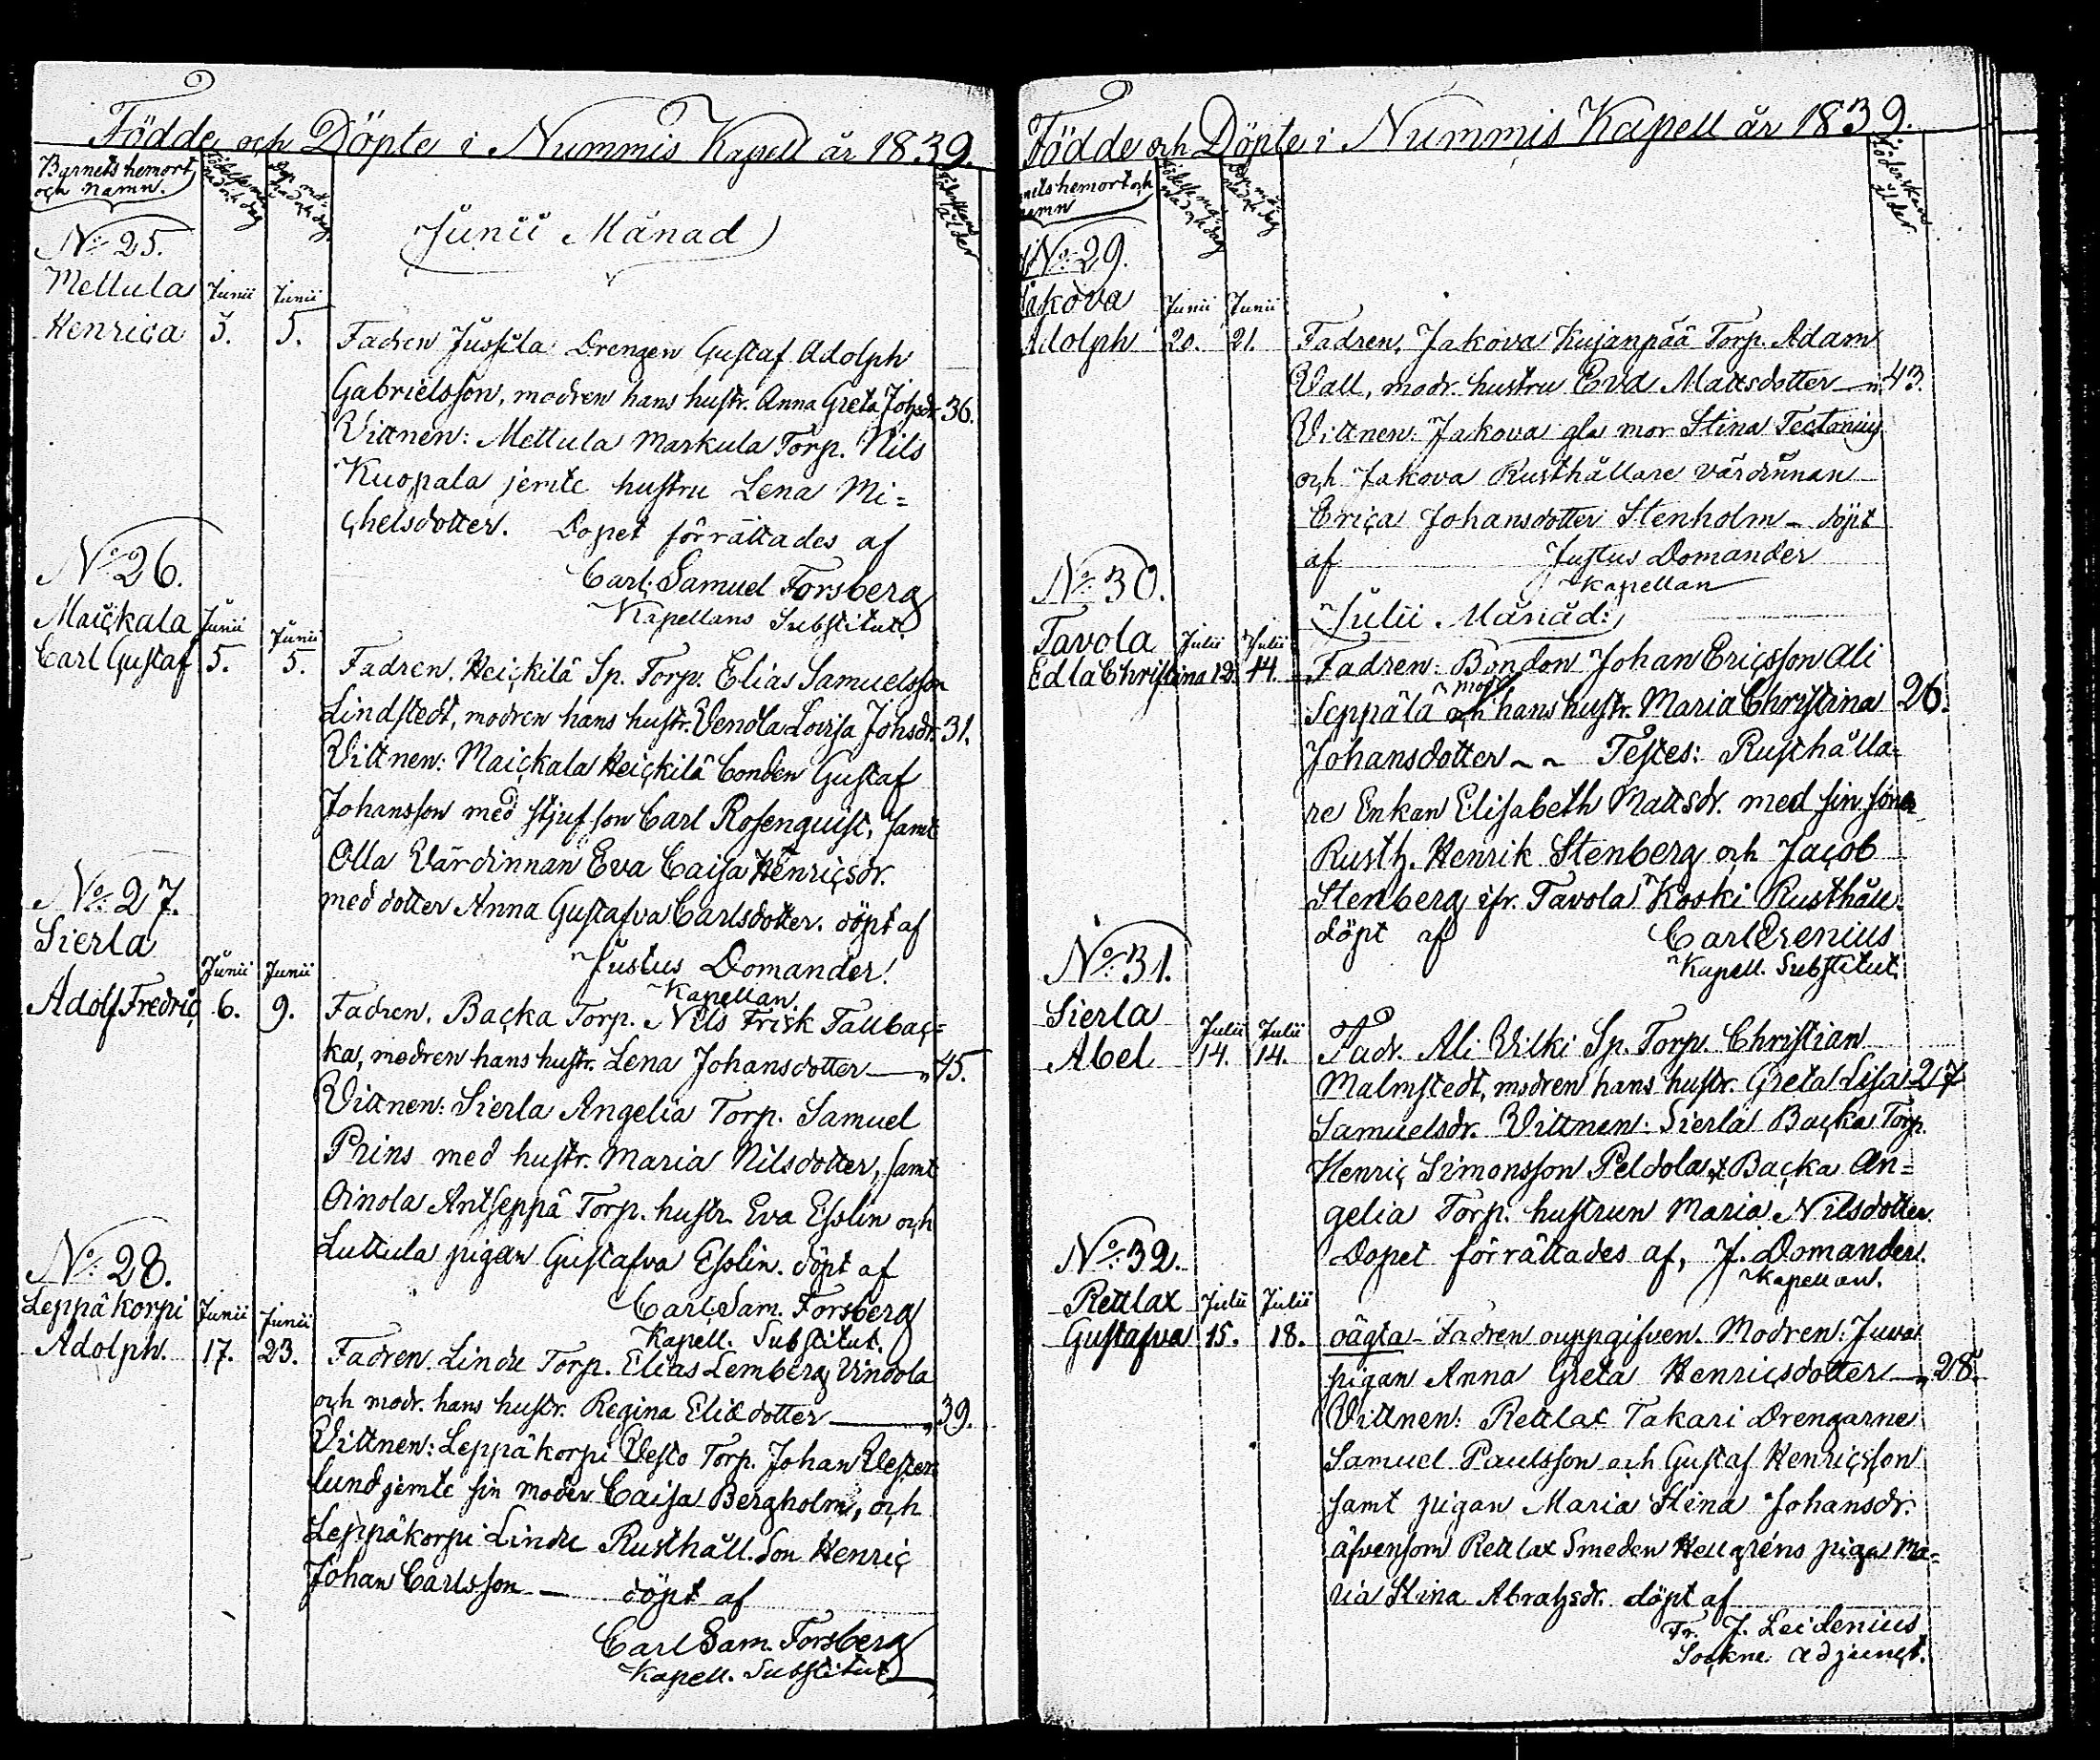 Födde och Döpte i Nummis Kapell år 1839.
Barnets hemort
och namn.
Junii Månad
No 25.
Mettula Junii Junii
Henrica 5. 5. Fadren Jussila Drengen Gustaf Adolph
Gabrielsson, modren hans hustr. Anna Greta Johsdr. 36.
Vittnen: Mettula Markula Torp. Nils
Kuopala jemte hustru Lena Mi-
chelsdotter. Dopet förrättades af
Carl Samuel Forsberg
Kapellans Substitut.
No 26.
Maickala Junii Junii
Carl Gustaf 5. 5. Fadren, Heickilä Sp. Torp. Elias Samuelsson
Lindstedt, modren hans hustr. Vendla Lovisa Johsdr. 31.
Vittnen: Maickala Heickilä bonden Gustaf
Johansson med stjufson Carl Rosenquist, samt
Olla Värdinnan Eva Caisa Henricsdr.
med dotter Anna Gustafva Carlsdotter. döpt af
Justus Domander
Kapellan.
No 27.
Sierla Junii Junii
Adolf Fredric 6. 9. Fadren, Backa Torp. Nils Frisk Tallbac-
ka, modren hans hustr. Lena Johansdotter — 45.
Vittnen: Sierla Angelia Torp. Samuel
Prins med hustr. Maria Nilsdotter, samt
Oinola Antseppä Torp. hustr. Eva Esslin och
Luttula pigan Gustafva Esslin. döpt af
Carl Sam. Forsberg
Kapell. Substitut.
No 28.
Leppäkorpi Junii Junii
Adolph. 17. 23. Fadren Lindu Torp. Elias Lemberg Uindola
och modr. hans hustr. Regina Eliædotter — 39.
Vittnen: Leppäkorpi Vesto Torp. Johan Vester-
lund jemte sin moder Caisa Bergholm, och
Leppäkorpi Lindu Rusthåll. Son Henric
Johan Carlsson — döpt af
Carl Sam. Forsberg
Kapell. Substitut
Födde och Döpte i Nummis Kapell år 1839.
hemort och
namn
Föderskans
ålder
No 29.
Jakova Junii Junii
Adolph 20. 21. Fadren, Jakova Kujanpää Torp. Adam
Vall, modr. hustru Eva Mattsdotter — 43.
Vittnen: Jakova gla mor Stina Tectonius
och Jakova Rusthållare värdinnan
Erica Johansdotter Stenholm — döpt
af Justus Domander
Kapellan
No 30.
Julii Månad:
Tavola Julii Julii
Edla Christina 12. 14. Fadren: Bonden Johan Ericsson Ali
Seppälä och modr hans hustr. Maria Christina 26.
Johansdotter ~ ~ Testes: Rusthålla-
re Enkan Elisabeth Mattsdr. med sin söner
Rusth. Henrik Stenberg och Jacob
Stenberg ifr. Tavola Koski Rusthåll.
döpt af Carl Crenius
Kapell. Substitut.
No 31.
Sierla Julii Julii
Abel 14. 14. Fadr. Ali Vilki Sp. Torp. Christian
Malmstedt, modren hans hustr. Greta Lisa 27
Samuelsdr. Vittnen: Sierla Backa Torp.
Henric Simonsson Peldola & Backa An-
gelia Torp. hustrun Maria Nilsdotter.
Dopet förrättades af, J. Domander.
Kapellan.
No 32.
Rettlax Julii Julii
Gustafva 15. 18. oägta — Fadren ouppgifven. Modren: Juva
pigan Anna Greta Henricsdotter — 28.
Vittnen: Rettlax Takari Drengarne
Samuel Paulsson och Gustaf Henricsson
samt pigan Maria Stina Johansdr.
äfvensom Rettlax Smeden Hellgréns piga Ma-
ria Stina Abrahsdr. döpt af
Fr. J. Leidenius
Sockne Adjunct.